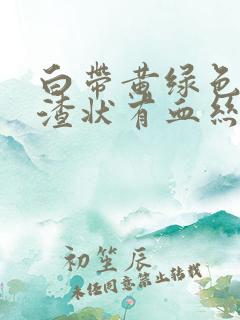 白带黄绿色
渣状有血丝
初笙辰
未经同意禁止转载